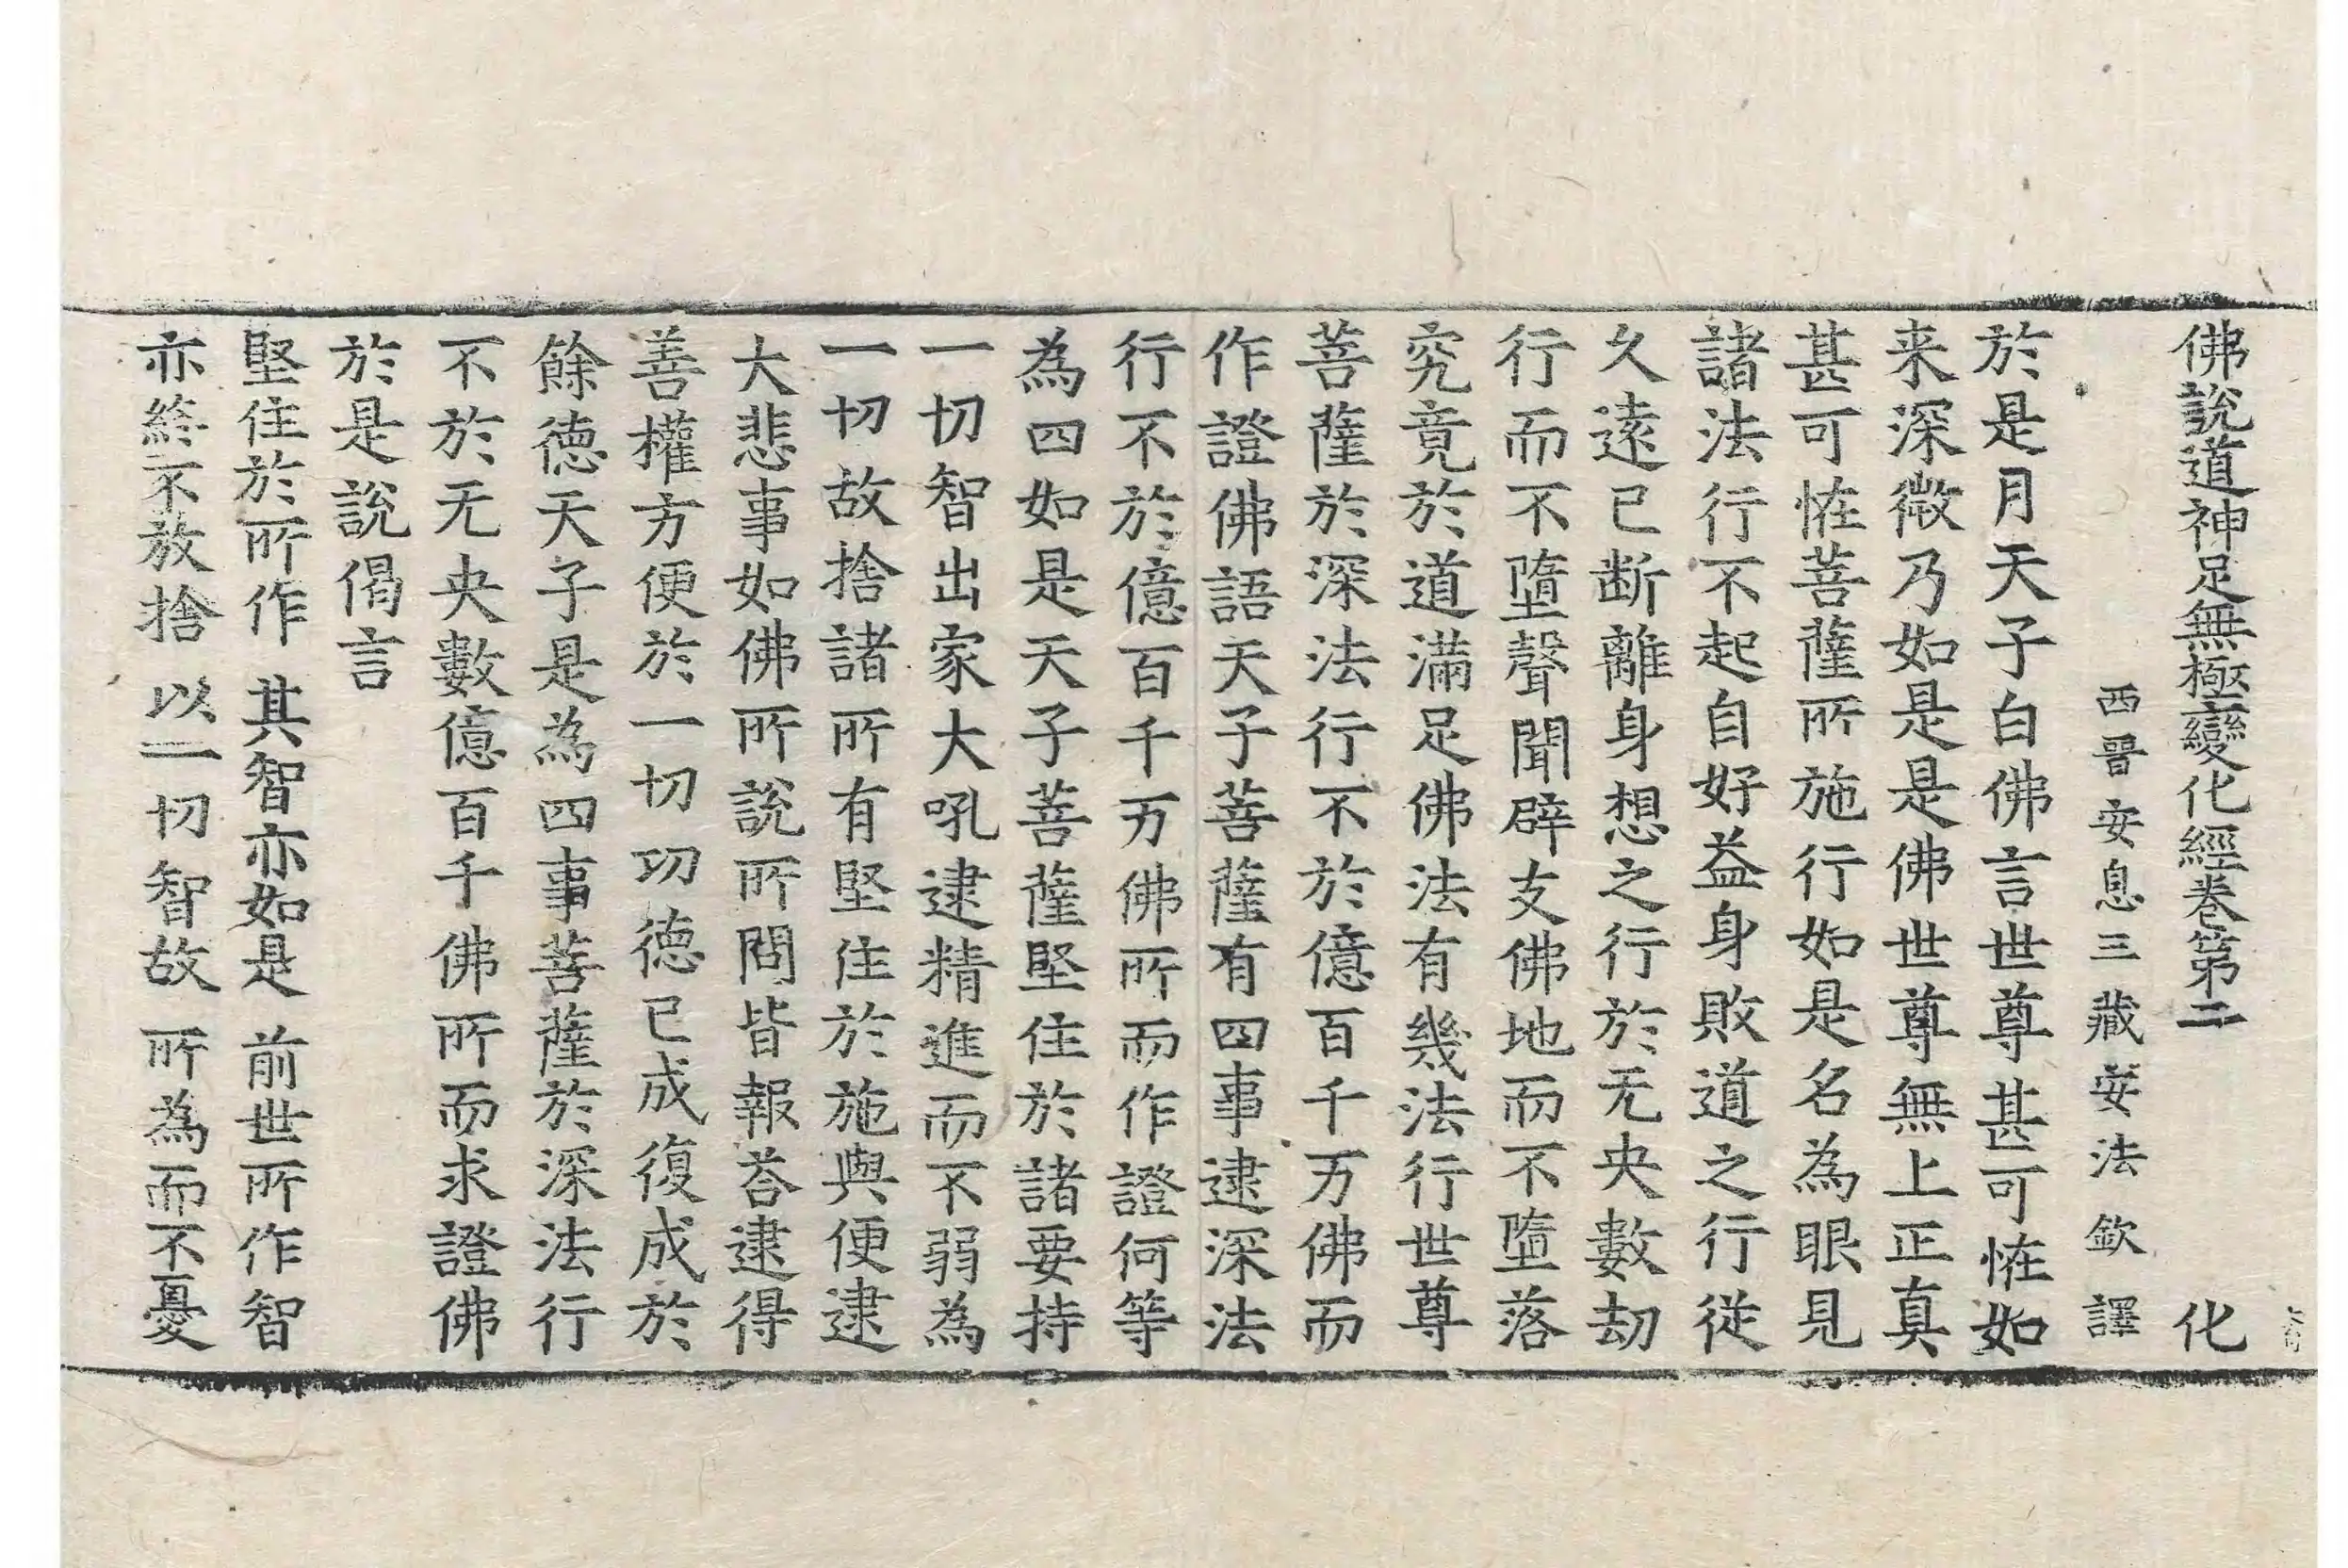 佛說道神足無極變化經卷第二 化
西晉安息三藏安法欽譯
於是月天子白佛言世尊甚可恠如
来深微乃如是是佛世尊無上正真
甚可恠菩薩所施行如是名為眼見
諸法行不起自好益身敗道之行從
久遠已断離身想之行於无央數劫
行而不墮聲聞辟支佛地而不墮落
究竟於道滿足佛法有幾法行世尊
菩薩於深法行不於億百千万佛而
作證佛語天子菩薩有四事逮深法
行不於億百千万佛所而作證何等
為四如是天子菩薩堅住於諸要持
一切智出家大吼逮精進而不弱為
一切故捨諸所有堅住於施與便逮
大悲事如佛所說所問皆報荅逮得
善權方便於一切功德已成復成於
餘德天子是為四事菩薩於深法行
不於无央數億百千佛所而求證佛
於是說偈言
堅住於所作 其智亦如是 前世所作智
亦終不放捨 以一切智故 所為而不憂